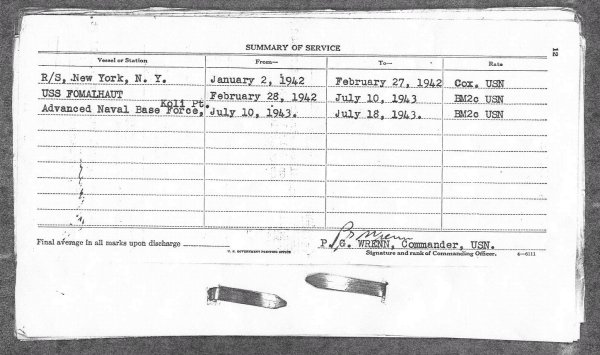 12
SUMMARY OF SERVICE
Vessel or Station From— To— Rate
R/S, New York, N. Y. January 2, 1942 February 27, 1942 Cox. USN
USS FOMALHAUT February 28, 1942 July 10, 1943 BM2c USN
Koli Pt.
Advanced Naval Base Force, July 10, 1943. July 18, 1943. BM2c USN
P G Wrenn
Final average in all marks upon discharge P. G. WRENN, Commander, USN.
U. S. GOVERNMENT PRINTING OFFICE Signature and rank of Commanding Officer. 4—6111